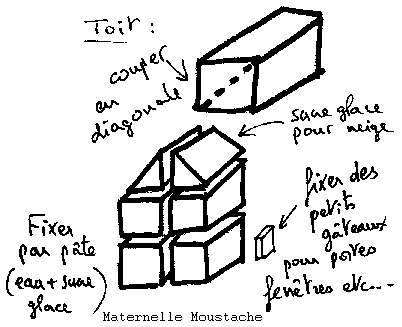 Toit :
couper
en
diagonale
sucre glace
pour neige
fixer des
petits
gâteaux
pour portes
fenêtres etc...
Fixer
par pâte
(eau + sucre
glace)
Maternelle Moustache